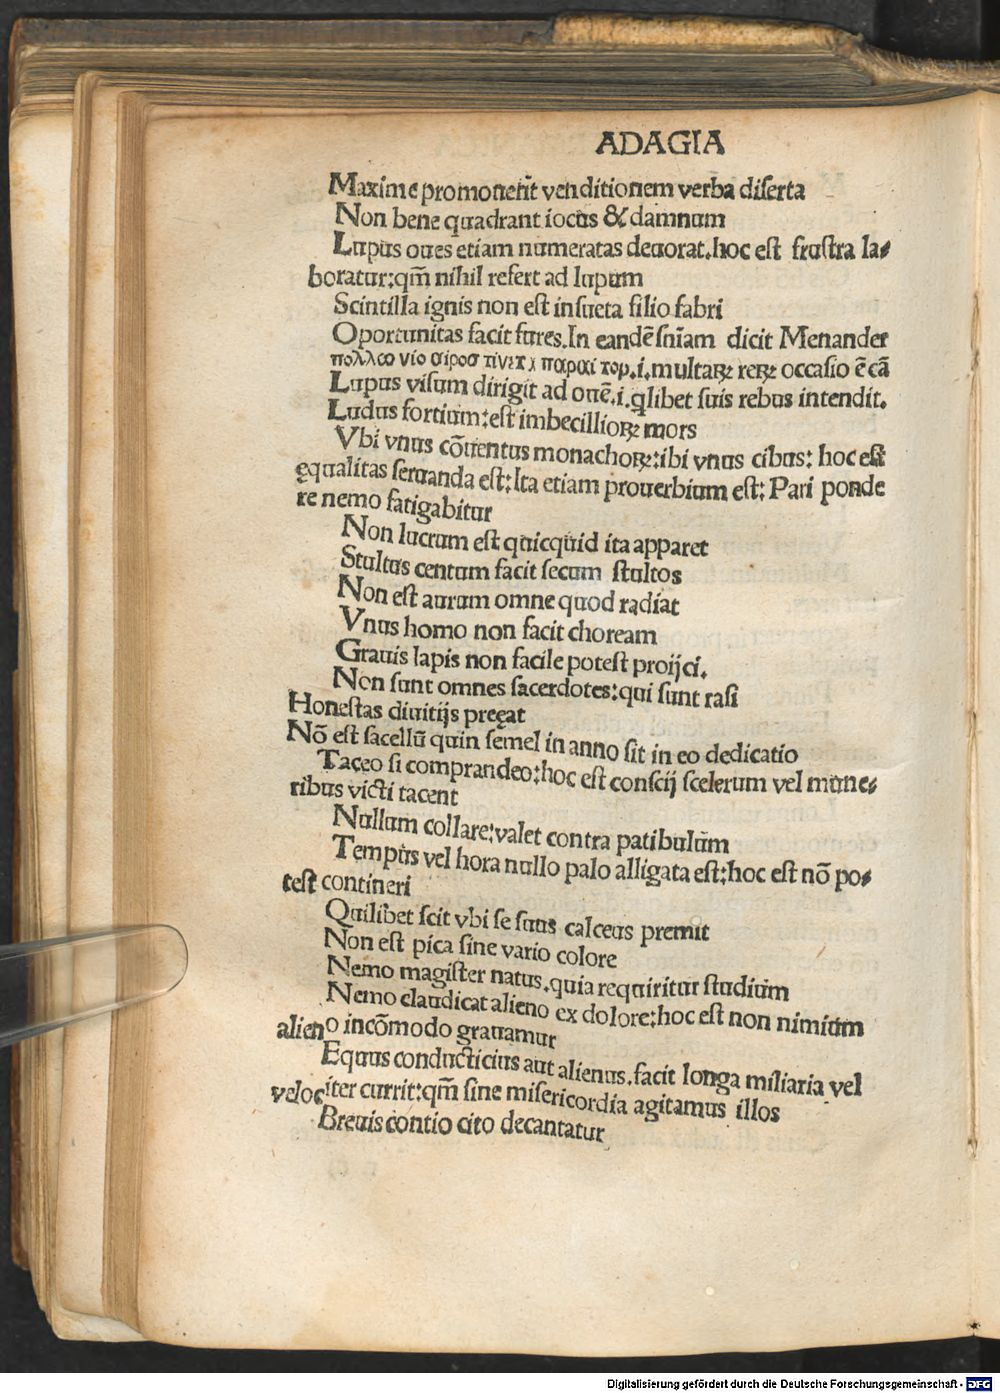 ADAGIA
Maxime promouent venditionem verba diserta
Non bene quadrant iocus & damnum
Lupus oues etiam numeratas deuorat.hoc est frustra la⸗
boratur:qm̃ nihil refert ad lupum
Scintilla ignis non est insueta filio fabri
Oportunitas facit fures.In eandẽ sñiam dicit Menander
.i.multaꝝ reꝝ occasio ẽ cã
Lupus visum dirigit ad ouẽ.i.qlibet suis rebus intendit.
Ludus fortium:est imbecillioꝝ mors
Vbi vnus cõuentus monachoꝝ:ibi vnus cibus: hoc est
ęqualitas seruanda est:Ita etiam prouerbium est: Pari ponde
re nemo fatigabitur
Non lucrum est quicquid ita apparet
Stultus centum facit secum stultos
Non est aurum omne quod radiat
Vnus homo non facit choream
Grauis lapis non facile potest proijci.
Non sunt omnes sacerdotes:qui sunt rasi
Honestas diuitijs pręeat
Nõ est sacellũ quin semel in anno sit in eo dedicatio
Taceo si comprandeo:hoc est conscij scelerum vel mune⸗
ribus victi tacent
Nullum collare:valet contra patibulum
Tempus vel hora nullo palo alligata est:hoc est nõ po⸗
test contineri
Quilibet scit vbi se suus calceus premit
Non est pica sine vario colore
Nemo magister natus.quia requiritur studium
Nemo claudicat alieno ex dolore:hoc est non nimium
alieno incõmodo grauamur
Equus conducticius aut alienus.facit longa miliaria vel
velociter currit:qm̃ sine misericordia agitamus illos
Breuis contio cito decantatur
Digitalisierung gefördert durch die Deutsche Forschungsgemeinschaft - DFG